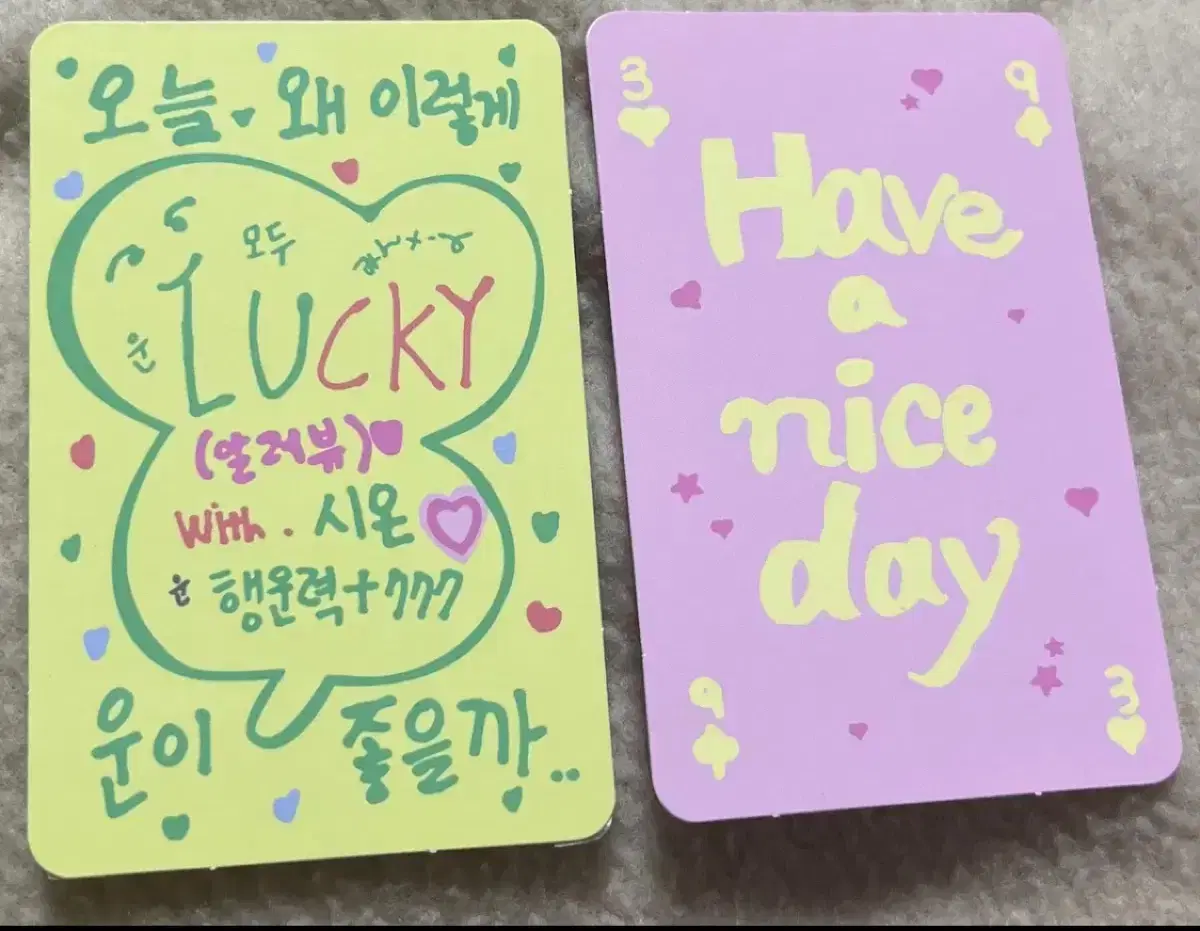 오늘. 왜 이렇게
모두
운
LUCKY
(알러뷰)
With. 시온
운 행운력+777
운이 좋을까..
3 9
Have
a
nice
day
9 3